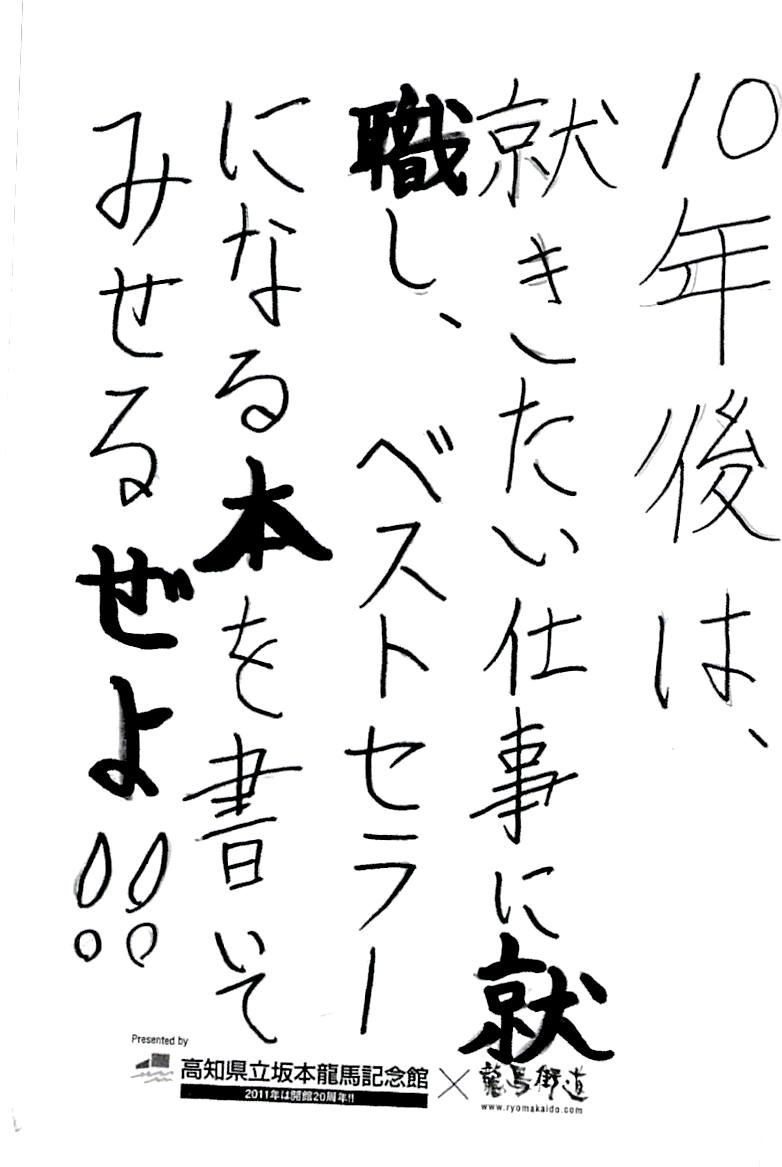 10年後は、
就きたい仕事に就
職し、ベストセラー
になる本を書いて
みせるぜよ!!
Presented by
高知県立坂本龍馬記念館
2011年は開館20周年!!
×
龍馬街道
www.ryomakaido.com